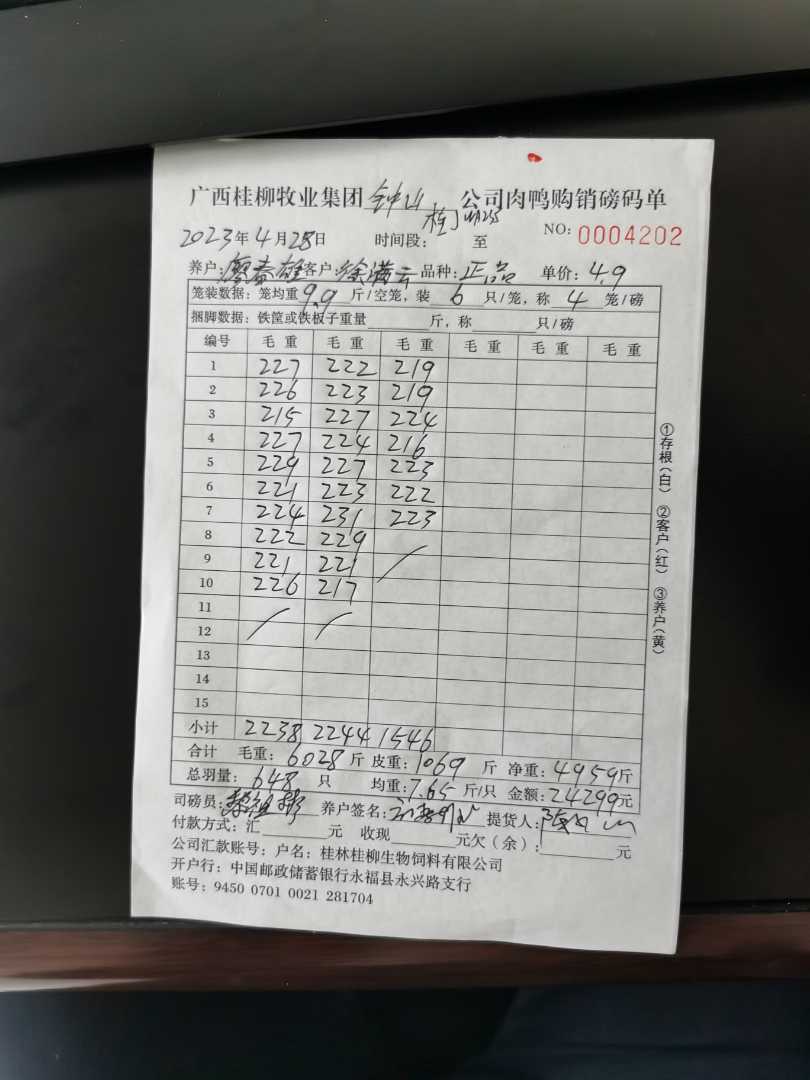 广西桂柳牧业集团钟山公司肉鸭购销磅码单
2023年4月28日 时间段: 至 NO: 0004202
养户: 廖春雄 客户: 徐满云 品种: 正品 单价: 4.9
笼装数据: 笼均重9.9斤/空笼, 装6只/笼, 称4笼/磅
捆脚数据: 铁筐或铁板子重量 斤, 称 只/磅
编号 毛重 毛重 毛重 毛重 毛重 毛重
1 227 222 219
2 226 223 219
3 215 227 224
4 227 224 216
5 229 227 223
6 221 223 222
7 224 231 223
8 222 229
9 221 221 /
10 226 217
11
12 / /
13
14
15
小计 2238 2244 1546
合计 毛重: 6028斤 皮重: 1069斤 净重: 4959斤
总羽量: 648只 均重: 7.65斤/只 金额: 24299元
司磅员: 养户签名: 提货人:
付款方式: 汇 元 收现 元欠(余): 元
公司汇款账号: 户名: 桂林桂柳生物饲料有限公司
开户行: 中国邮政储蓄银行永福县永兴路支行
账号: 9450 0701 0021 281704
①存根(白) ②客户(红) ③养户(黄)